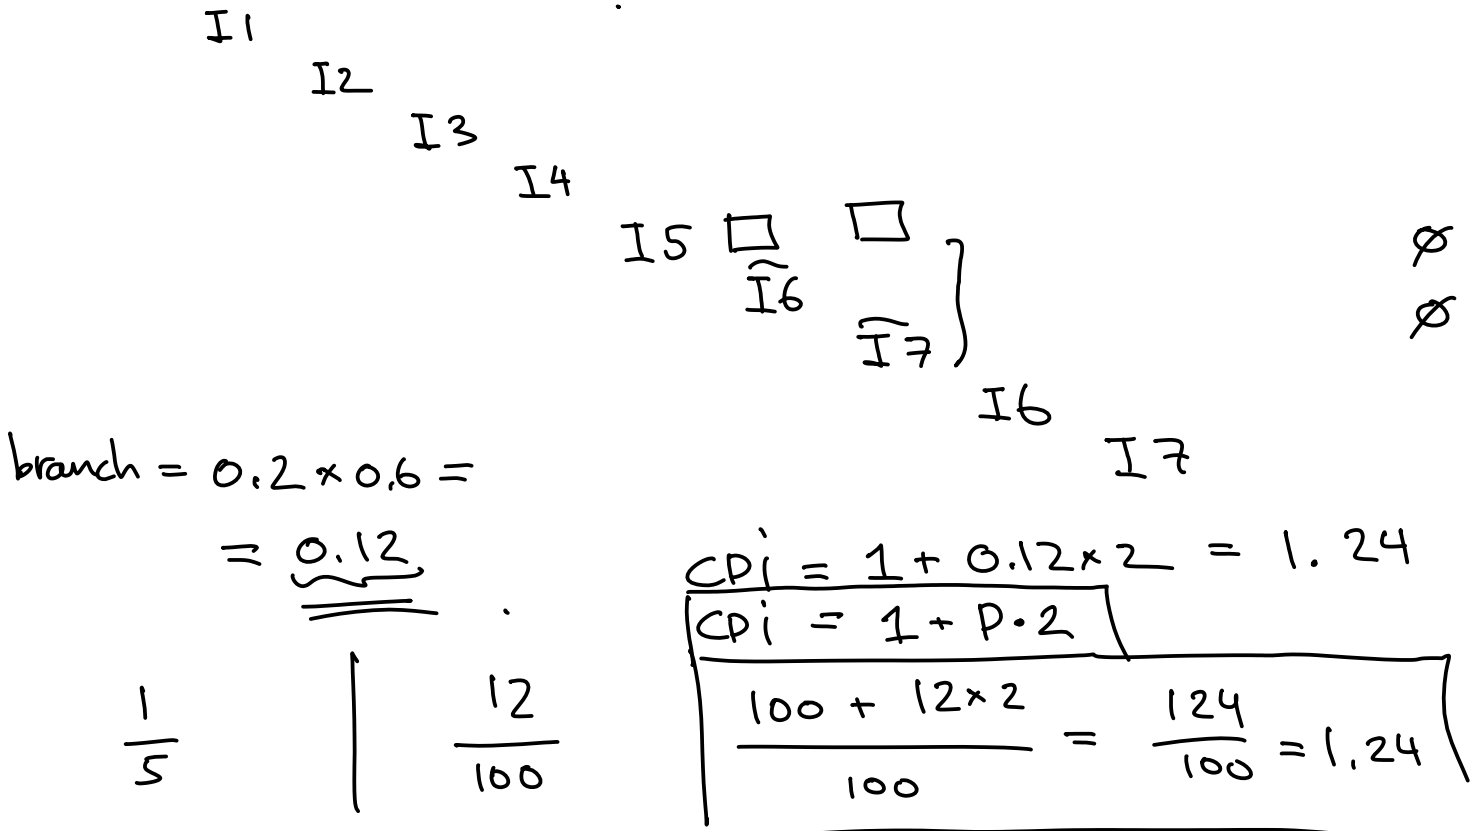 I1
I2
I3
I4
I5
I6
I7
I6
I7
Ø
Ø
branch = 0.2 × 0.6 =
= 0.12
CPi = 1 + 0.12 × 2 = 1.24
CPi = 1 + P · 2
1/5
12/100
(100 + 12 × 2)/100 = 124/100 = 1.24